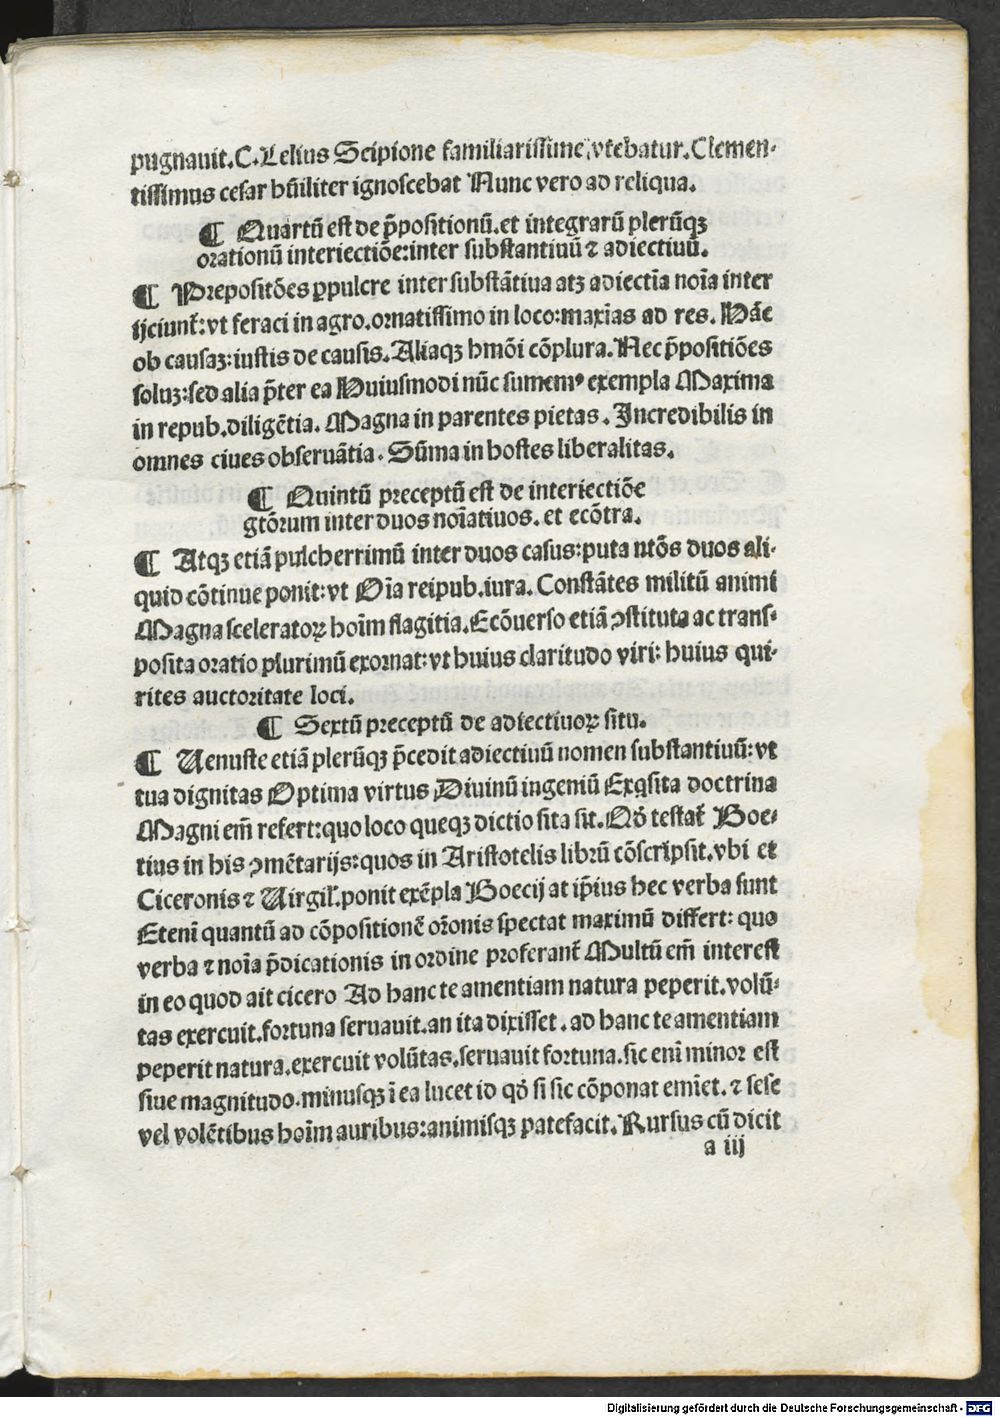 pugnauit.C.Lelius Scipione familiarissime vtebatur.Clemen-
tissimus cesar hūiliter ignoscebat Nunc vero ad reliqua.
¶ Quartū est de p̄positionū.et integrarū plerūqꝫ
orationū interiectiōe:inter substantiuū ⁊ adiectiuū.
¶ Prepositōes ꝑpulcre inter substātiua atqꝫ adiectīa noīa inter
ijciunt̄:vt feraci in agro.ornatissimo in loco:maxīas ad res. Hāc
ob causaꝫ:iustis de causis.Aliaqꝫ hmōi cōplura.Nec p̄positiōes
soluꝫ:sed alia p̄ter ea Huiusmodi nūc sumemꝰ exempla Maxima
in repub.diligētia. Magna in parentes pietas. Incredibilis in
omnes ciues obseruātia. Sūma in hostes liberalitas.
¶ Quintū preceptū est de interiectiōe
gtōrum inter duos noīatiuos. et ecōtra.
¶ Atqꝫ etiā pulcherrimū inter duos casus:puta ntōs duos ali-
quid cōtinue ponit:vt Oīa reipub.iura. Constātes militū animi
Magna sceleratoꝝ hoīm flagitia.Ecōuerso etiā ꝯstituta ac trans-
posita oratio plurimū exornat:vt huius claritudo viri: huius qui-
rites auctoritate loci.
¶ Sextū preceptū de adiectiuoꝝ situ.
¶ Uenuste etiā plerūqꝫ p̄cedit adiectiuū nomen substantiuū:vt
tua dignitas Optima virtus Diuinū ingeniū Exqsita doctrina
Magni em̄ refert:quo loco queqꝫ dictio sita sit.Qd̓ testat̄ Boe-
tius in his ꝯmētarijs:quos in Aristotelis librū cōscripsit.vbi et
Ciceronis ⁊ Uirgil̄.ponit exēpla Boecij at ip̄ius hec verba sunt
Etenī quantū ad cōpositionē orōnis spectat maximū differt: quo
verba ⁊ noīa p̄dicationis in ordine proferant̄ Multū em̄ interest
in eo quod ait cicero Ad hanc te amentiam natura peperit.volū-
tas exercuit.fortuna seruauit.an ita dixisset. ad hanc te amentiam
peperit natura.exercuit volūtas.seruauit fortuna.sic enī minor est
siue magnitudo.minusqꝫ ī ea lucet id qd̓ si sic cōponat emīet. ⁊ sese
vel volētibus hoīm auribus:animisqꝫ patefacit.Rursus cū dicit
a iij
Digitalisierung gefördert durch die Deutsche Forschungsgemeinschaft - DFG